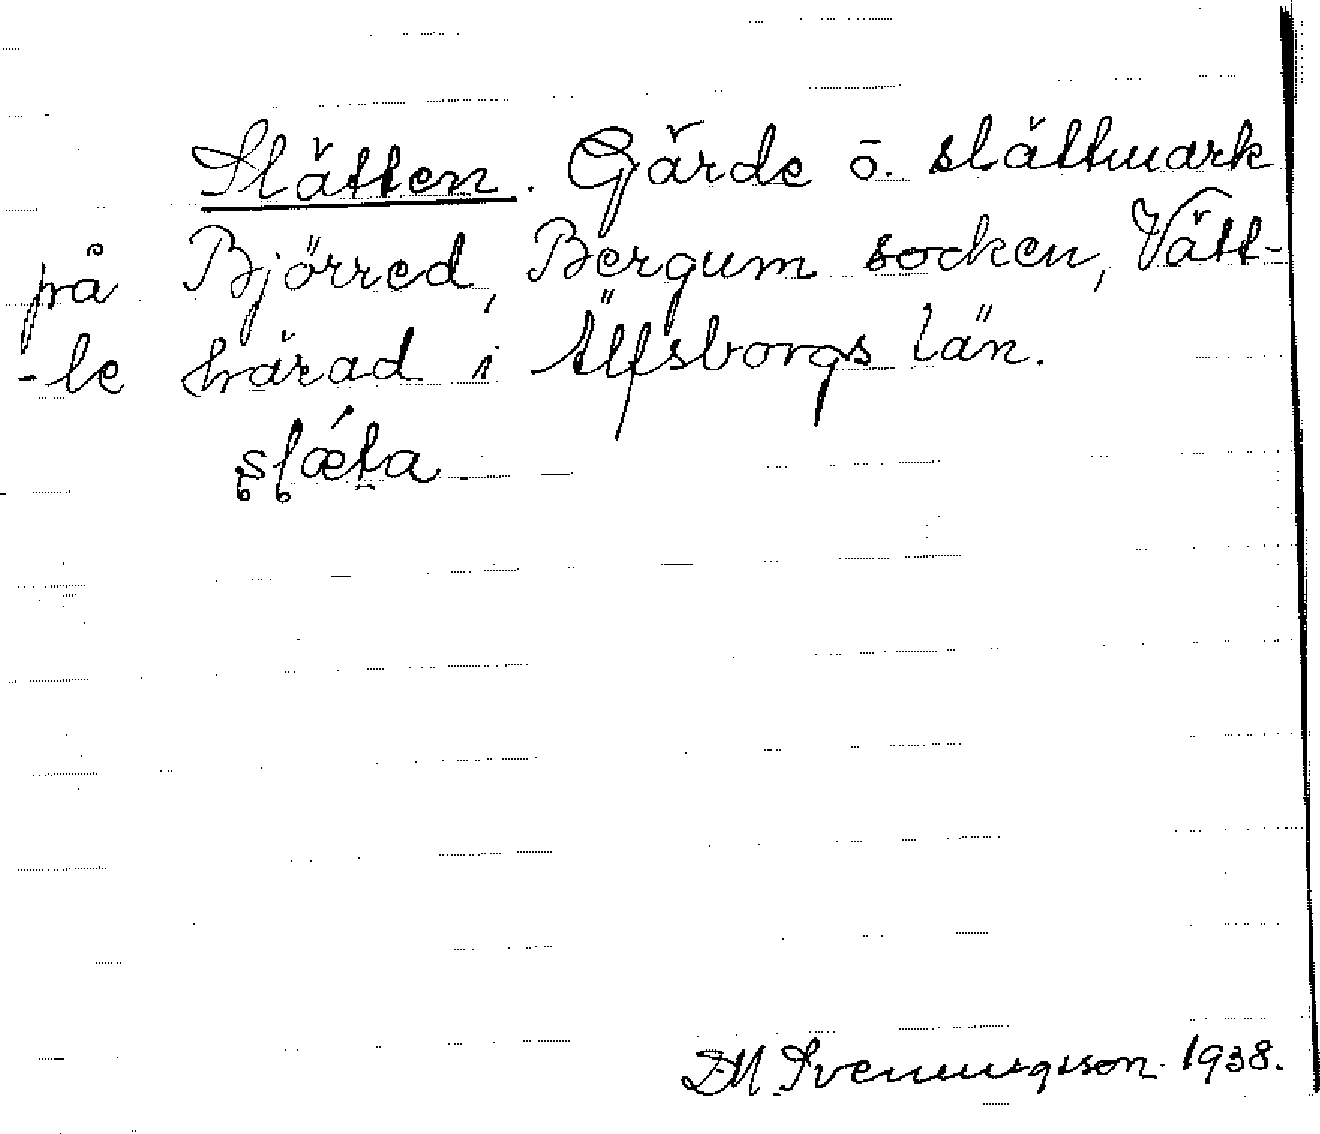 Slätten. Gärde o. slättmark
på Björred, Bergum socken, Vätt-
-le härad i Älfsborgs län.
slǽta
DM Svenningsson 1938.